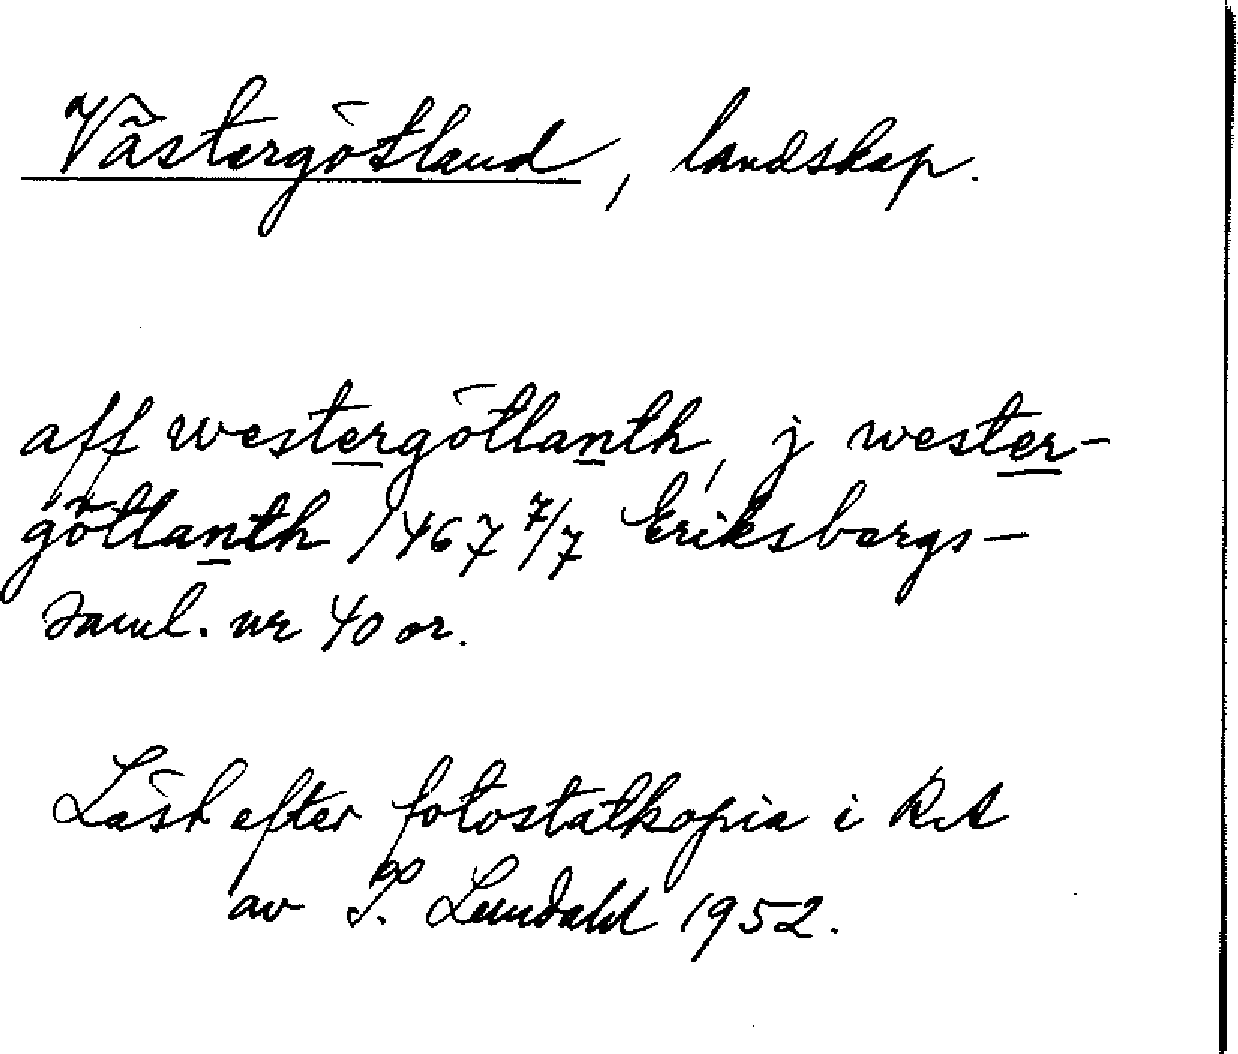 Västergötland, landskap.
aff westergötlanth, j wester-
götlanth 1467 7/7 Eriksbergs-
saml. nr 40 or.
Läst efter fotostatkopia i RA
av I. Lundahl 1952.